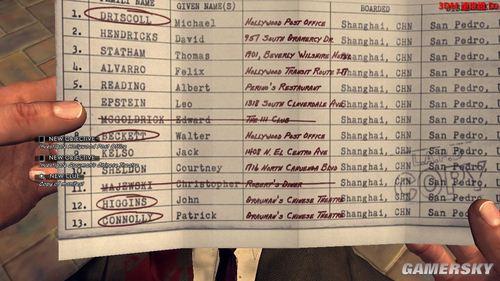 FAMILY NAME GIVEN NAME(S) BOARDED
1. DRISCOLL Michael HOLLYWOOD POST OFFICE Shanghai, CHN San Pedro,
2. HENDRICKS David 957 SOUTH GRAMERCY DR. Shanghai, CHN San Pedro,
3. STATHAM Thomas 1901, BEVERLY WILSHIRE Shanghai, CHN San Pedro,
4. ALVARRO Felix HOLLYWOOD TRANSIT ROUTE Shanghai, CHN San Pedro,
5. READING Albert PERINO'S RESTAURANT Shanghai, CHN San Pedro,
6. EPSTEIN Leo 1318 SOUTH CLOVERDALE AVE Shanghai, CHN San Pedro,
MCGOLDRICK Edward THE 111 CLUB Shanghai, CHN San Pedro,
NEW OBJECTIVE
Investigate Hollywood Post Office
8. BECKETT Walter HOLLYWOOD POST OFFICE Shanghai, CHN San Pedro,
NEW OBJECTIVE
KELSO Jack 1408 N. EL CENTRO AVE Shanghai, CHN San Pedro,
NEW CLUE
SHELDON Courtney 1716 NORTH CAHUENGA BLVD Shanghai, CHN San Pedro,
Copy of manifest
11. MAJEWSKI Christopher ROBERT'S DINER Shanghai, CHN San Pedro,
12. HIGGINS John GRAUMAN'S CHINESE THEATRE Shanghai, CHN San Pedro,
13. CONNOLLY Patrick GRAUMAN'S CHINESE THEATRE Shanghai, CHN San Pedro,
GAMERSKY